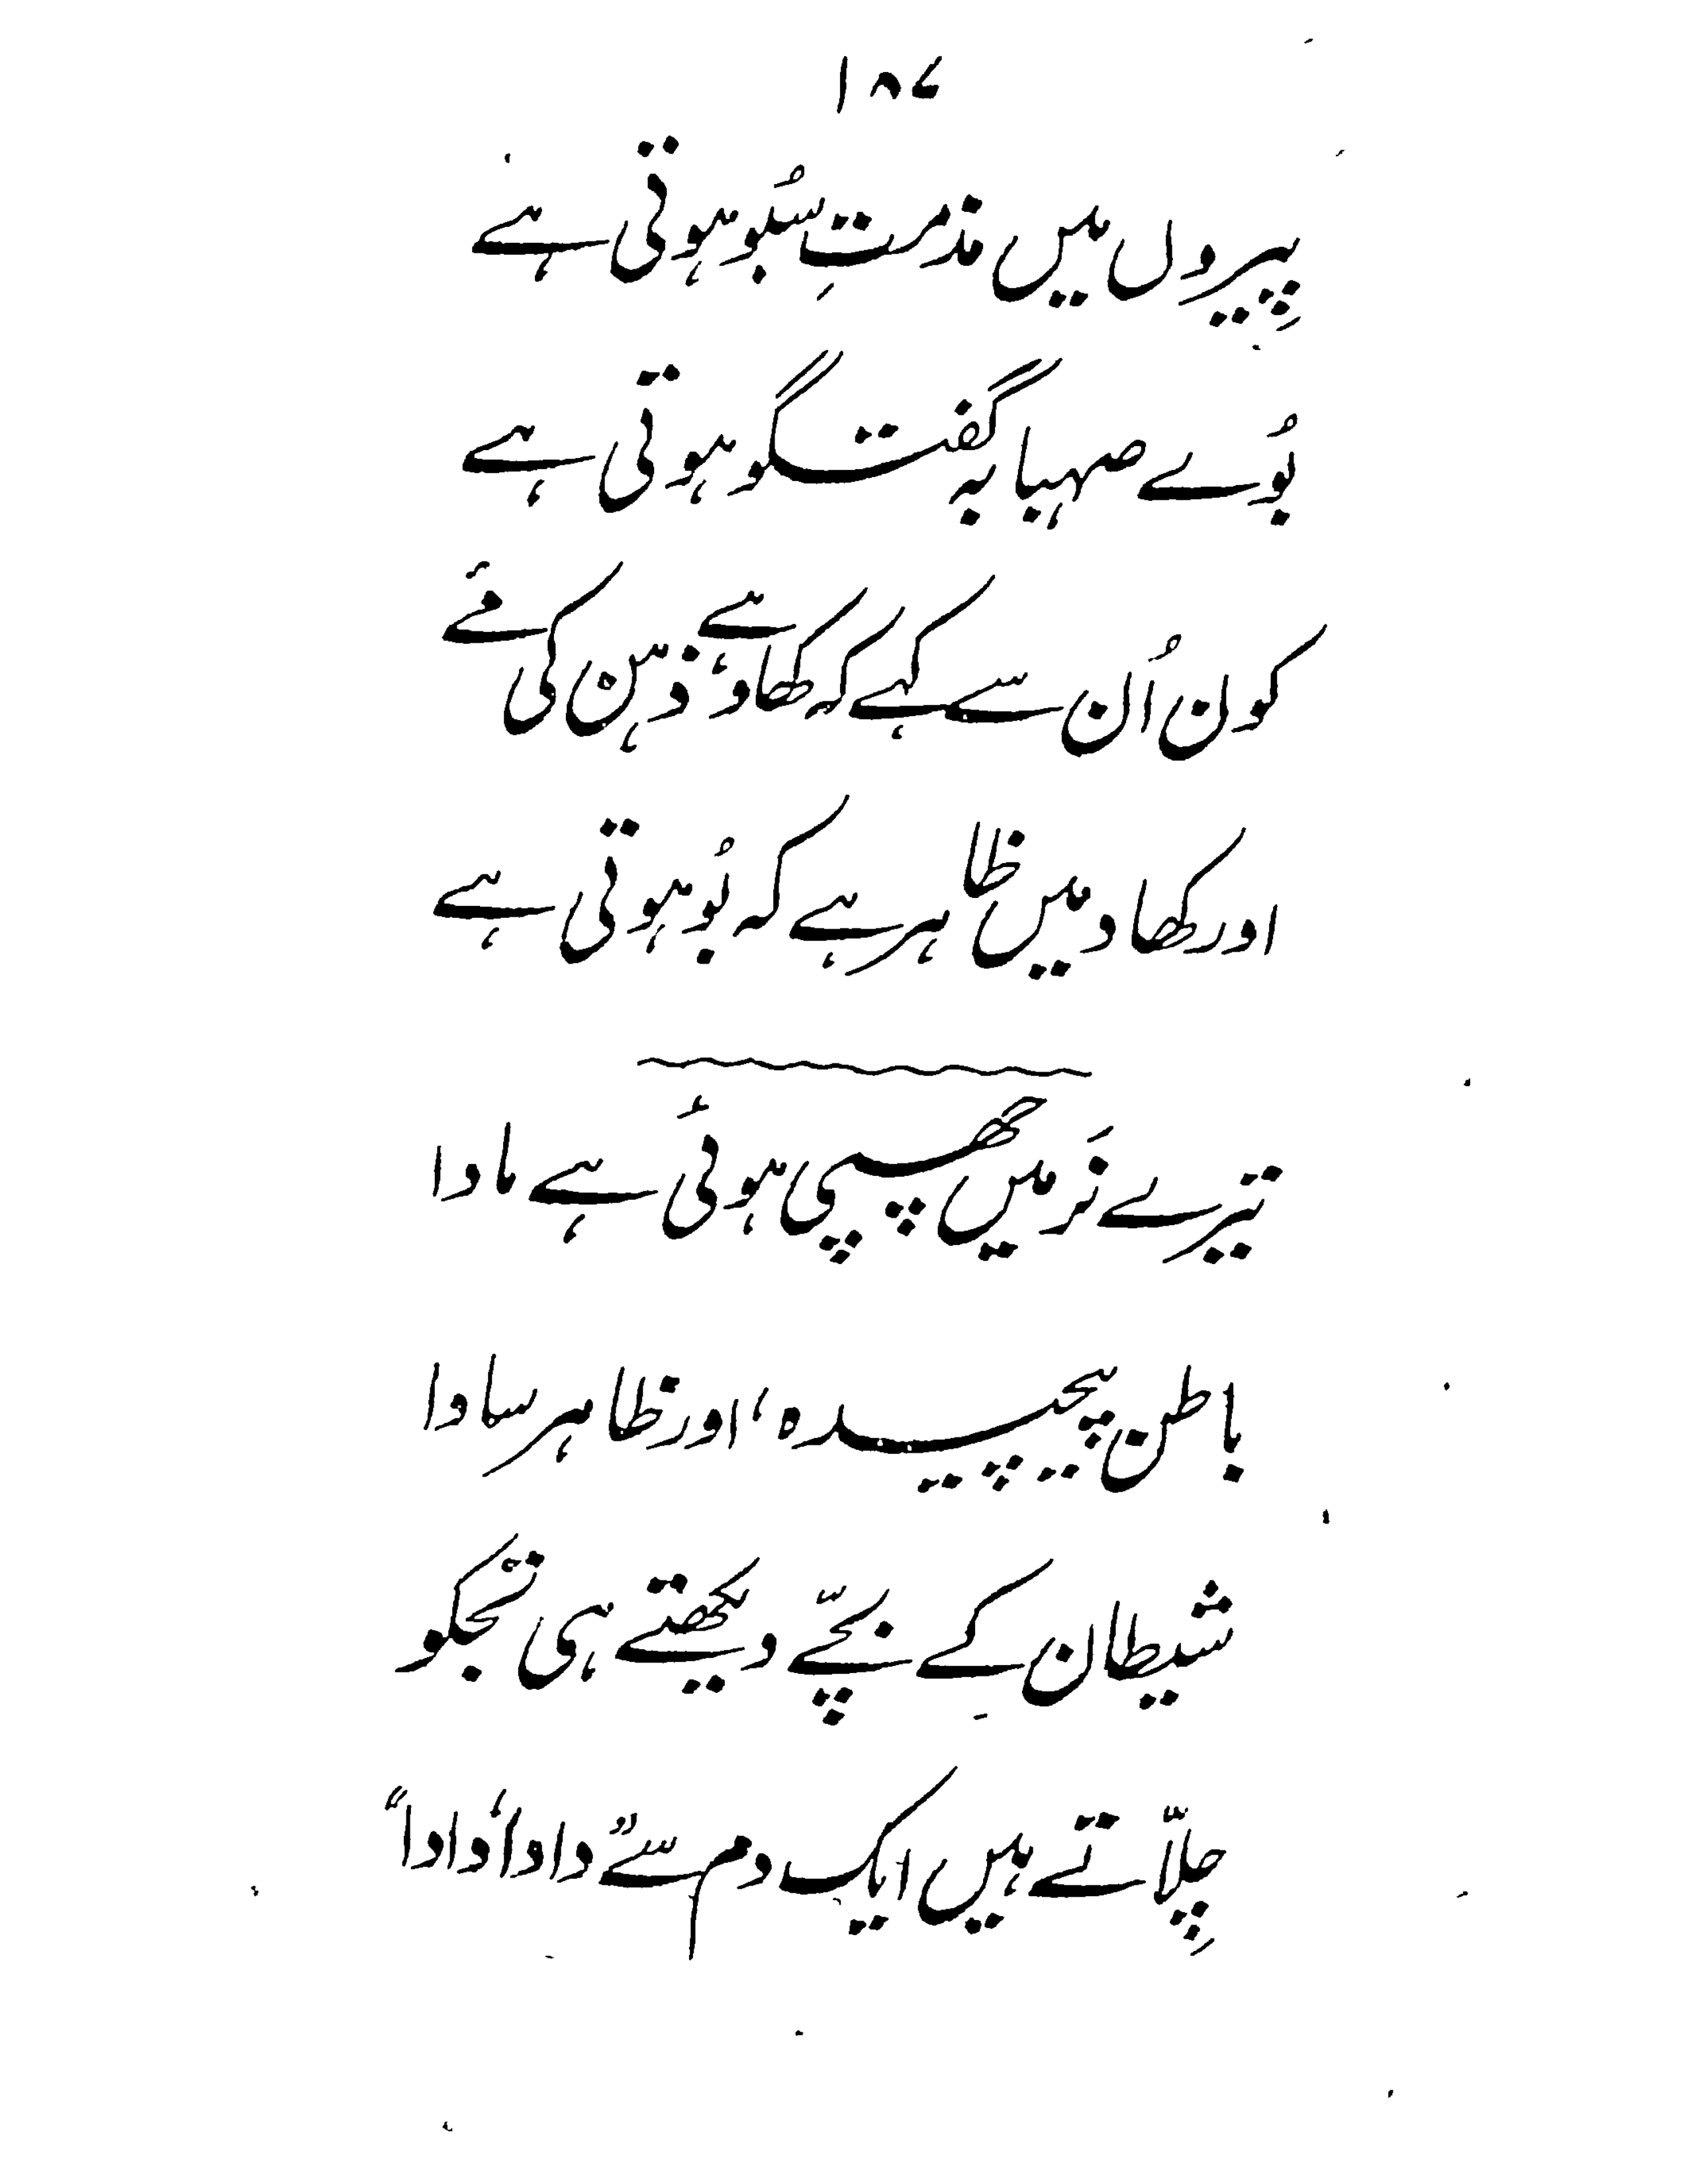 ۱۸۷
پِیروں میں مذمتِ سُبُو ہوتی ہے
بُوئے صہبا پہ گفتگو ہوتی ہے
کون اُن سے کہے کہ کھاد ہے، ذہن کی مَے
اور کھاد میں ظاہر ہے کہ بُو ہوتی ہے
تیرے نَر میں چھپی ہوئی ہے مادا
باطن پیچیدہ، اور ظاہر سادا
شیطان کے بچّے دیکھتے ہی تجھکو
چِلّاتے ہیں ایک دم سے "دادا، دادا"